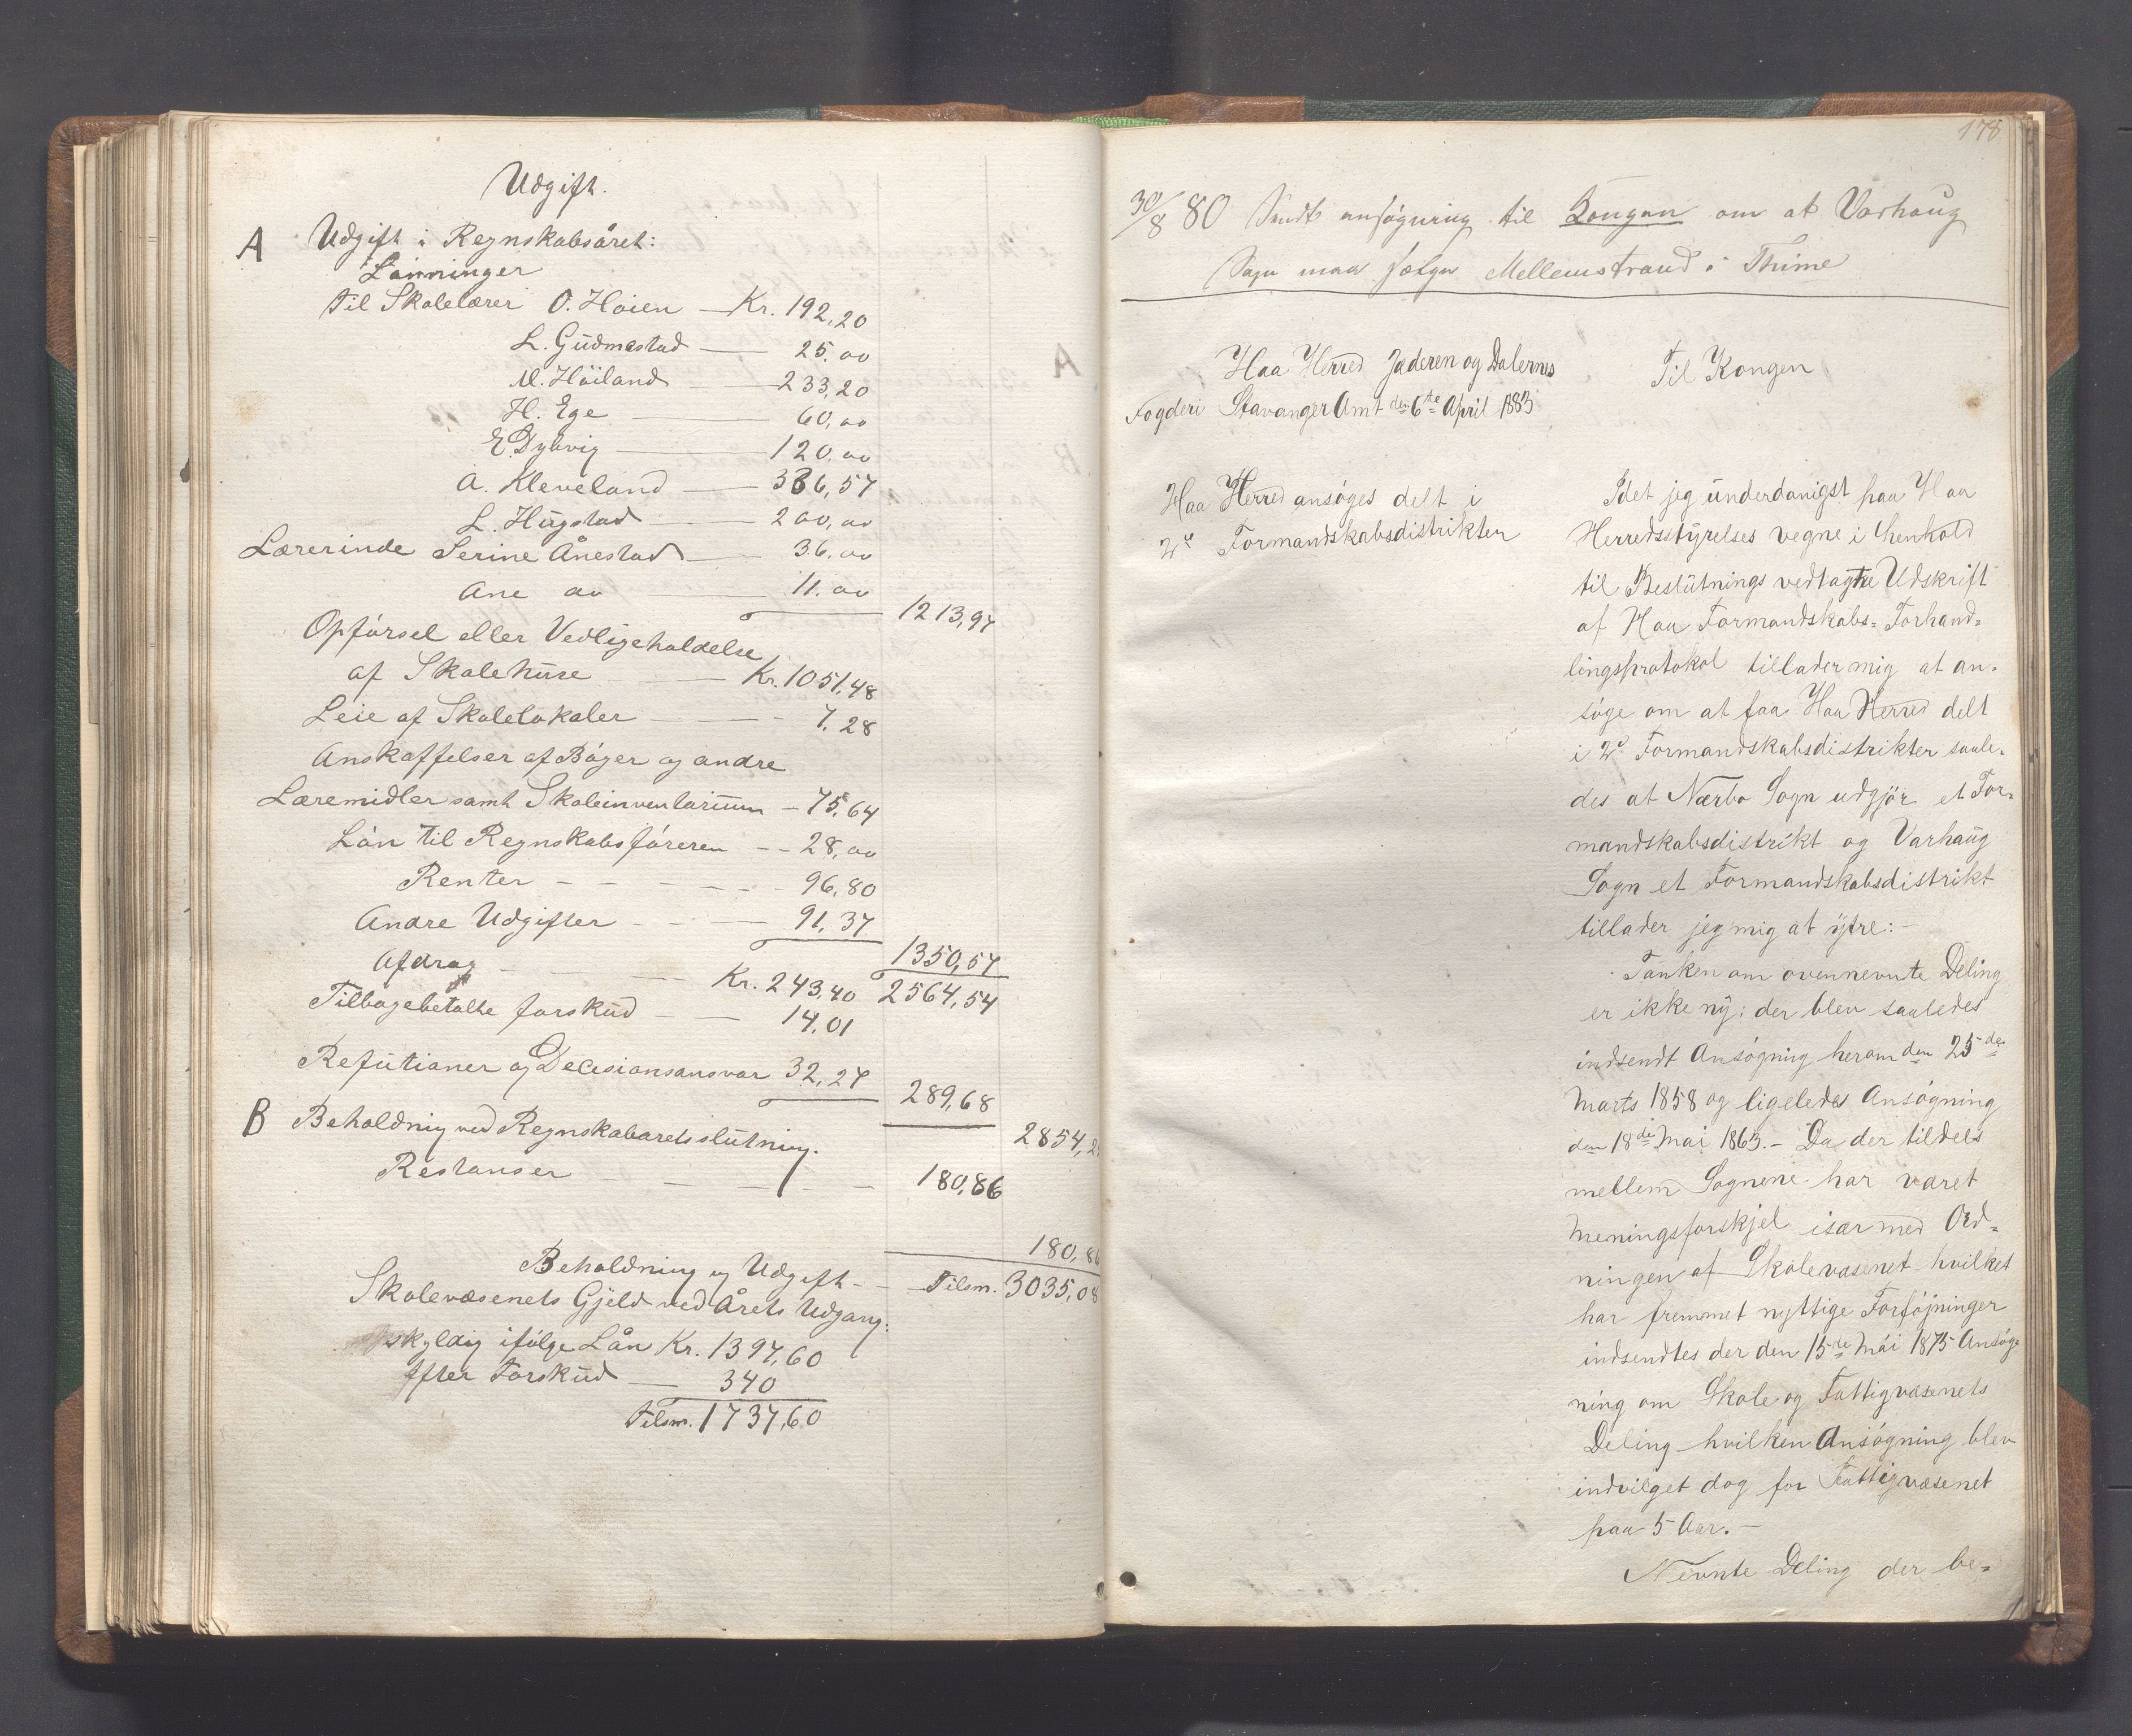 Udgift.
A Udgift i Regnskabsåret:
Lønninger
til Skolelærer O. Høien — Kr. 192,20
L. Gudmestad — 25.00
M. Höiland — 233,20
H. Ege — 60,00
E. Dybvig — 120.00
A. Kleveland — 336,57
L. Hugstad — 200,00
Lærerinde Serine Ånestad — 36.00
Ane do — 11.00
1213,97
Opførsel eller Vedligeholdelse
af Skolehuse — Kr. 1051,48
Leie af Skolelokaler — 7.28
Anskaffelser af Bøger og andre
Læremidler samt Skoleinventarium — 75,64
Lön til Regnskabsføreren — 28,00
Renter — 96,80
Andre Udgifter — 91,37
1350,57
Afdrag — Kr. 243,40 2564,54
Tilbagebetalte forskud — 14,01
Refutioner og Decisionsansvar 32,27
289,68
B Beholdning ved Regnskabsårets slutning. 2854,2
Restanser — 180,86
180,86
Beholdning og Udgift — Tilsm. 3035,08
Skolevæsenets Gjeld ved Årets Udgang:
skyldig ifølge Lån Kr. 1397,60
Efter Forskud — 340
Tilsm. 1737,60
178
30/8 80 Sendt ansøgning til Kongen om at Varhaug
Sogn maa følge Mellemstrand i Thime
Haa Herred Jæderen og Dalernes
Fogderi Stavanger Amt den 6te April 1883
Til Kongen
Haa Herred ansøges delt i
2de Formandskabsdistrikter
Idet jeg underdanigst paa Haa
Herredsstyrelses vegne i henhold
til Beslutnings vedtagne Udskrift
af Haa Formandskabs= Forhand=
lingsprotokol tillader mig at an=
søge om at faa Haa Herred delt
i 2de Formandskabsdistrikter saale=
des at Nærbo Sogn udgjør et For=
mandskabsdistrikt og Varhaug
Sogn et Formandskabsdistrikt
tillader jeg mig at ytre: —
Tanken om ovennevnte Deling
er ikke ny: der blev saaledes
indsendt Ansøgning herom den 25de
Marts 1858 og ligeledes Ansøgning
den 18de Mai 1863. — Da der tildels
mellem Sognene har været
Meningsforskjel især med Ord=
ningen af Skolevæsenet hvilket
har fremmet nyttige Forføjninger
indsendtes der den 15de Mai 1875 Ansøg
ning om Skole og Fattigvæsenets
Deling hvilken Ansøgning blev
indvilget dog for Fattigvæsenet
paa 5 Aar. —
Nevnte Deling der be=